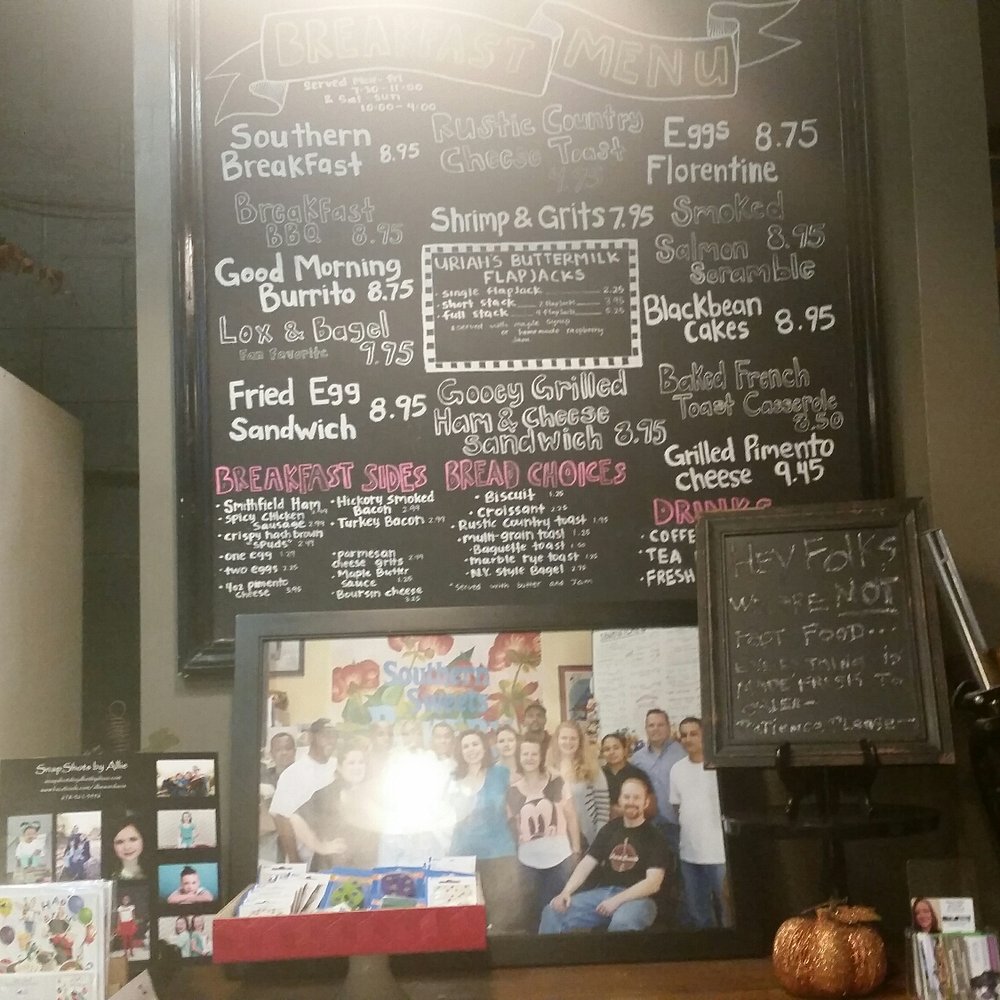 BREAKFAST MENU
Served Mon-Fri
7:30-11:00
& Sat-Sun
10:00-4:00
Southern
Breakfast 8.95
Breakfast
BBQ 8.95
Good Morning
Burrito 8.75
Lox & Bagel
Fan Favorite 9.95
Fried Egg
Sandwich 8.95
Rustic Country
Cheese Toast
Shrimp & Grits 7.95
URIAH'S BUTTERMILK
FLAPJACKS
• single flapjack 2.25
• short stack 2 flapjacks 3.95
• full stack 5.25
served with maple syrup
or homemade raspberry
Jam
Gooey Grilled
Ham & Cheese
Sandwich 8.95
Eggs 8.75
Florentine
Smoked
Salmon 8.95
Scramble
Blackbean
Cakes 8.95
Baked French
Toast Casserole
8.50
Grilled Pimento
Cheese 9.45
BREAKFAST SIDES
• Smithfield Ham
• Spicy Chicken
Sausage 2.99
• crispy hashbrown
"spuds" 2.49
• one egg 1.29
• two eggs 2.25
• 4oz pimento
cheese 3.95
• Hickory smoked
Bacon 2.99
• Turkey Bacon 2.99
• parmesan
cheese grits 2.99
• Maple Butter
Sauce 1.25
• Boursin cheese
BREAD CHOICES
• Biscuit 1.25
• Croissant 2.25
• Rustic Country toast 1.95
• multi-grain toast 1.25
• Baguette toast 1.50
• marble rye toast 1.95
• N.Y. Style Bagel 2.75
*Served with butter and Jam
DRINKS
• COFFE
• TEA
• FRESH
HEY FOLKS
WE ARE NOT
FAST FOOD...
EVERYTHING IS
MADE FRESH TO
ORDER-
"Patience Please"
Southern
Sweets
SnapShots by Allie